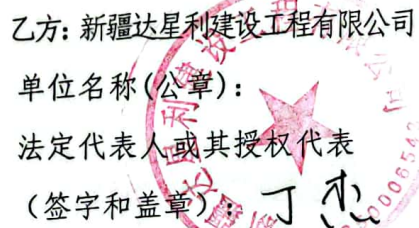 乙方: 新疆达星利建设工程有限公司
单位名称(公章):
法定代表人或其授权代表
(签字和盖章): 丁